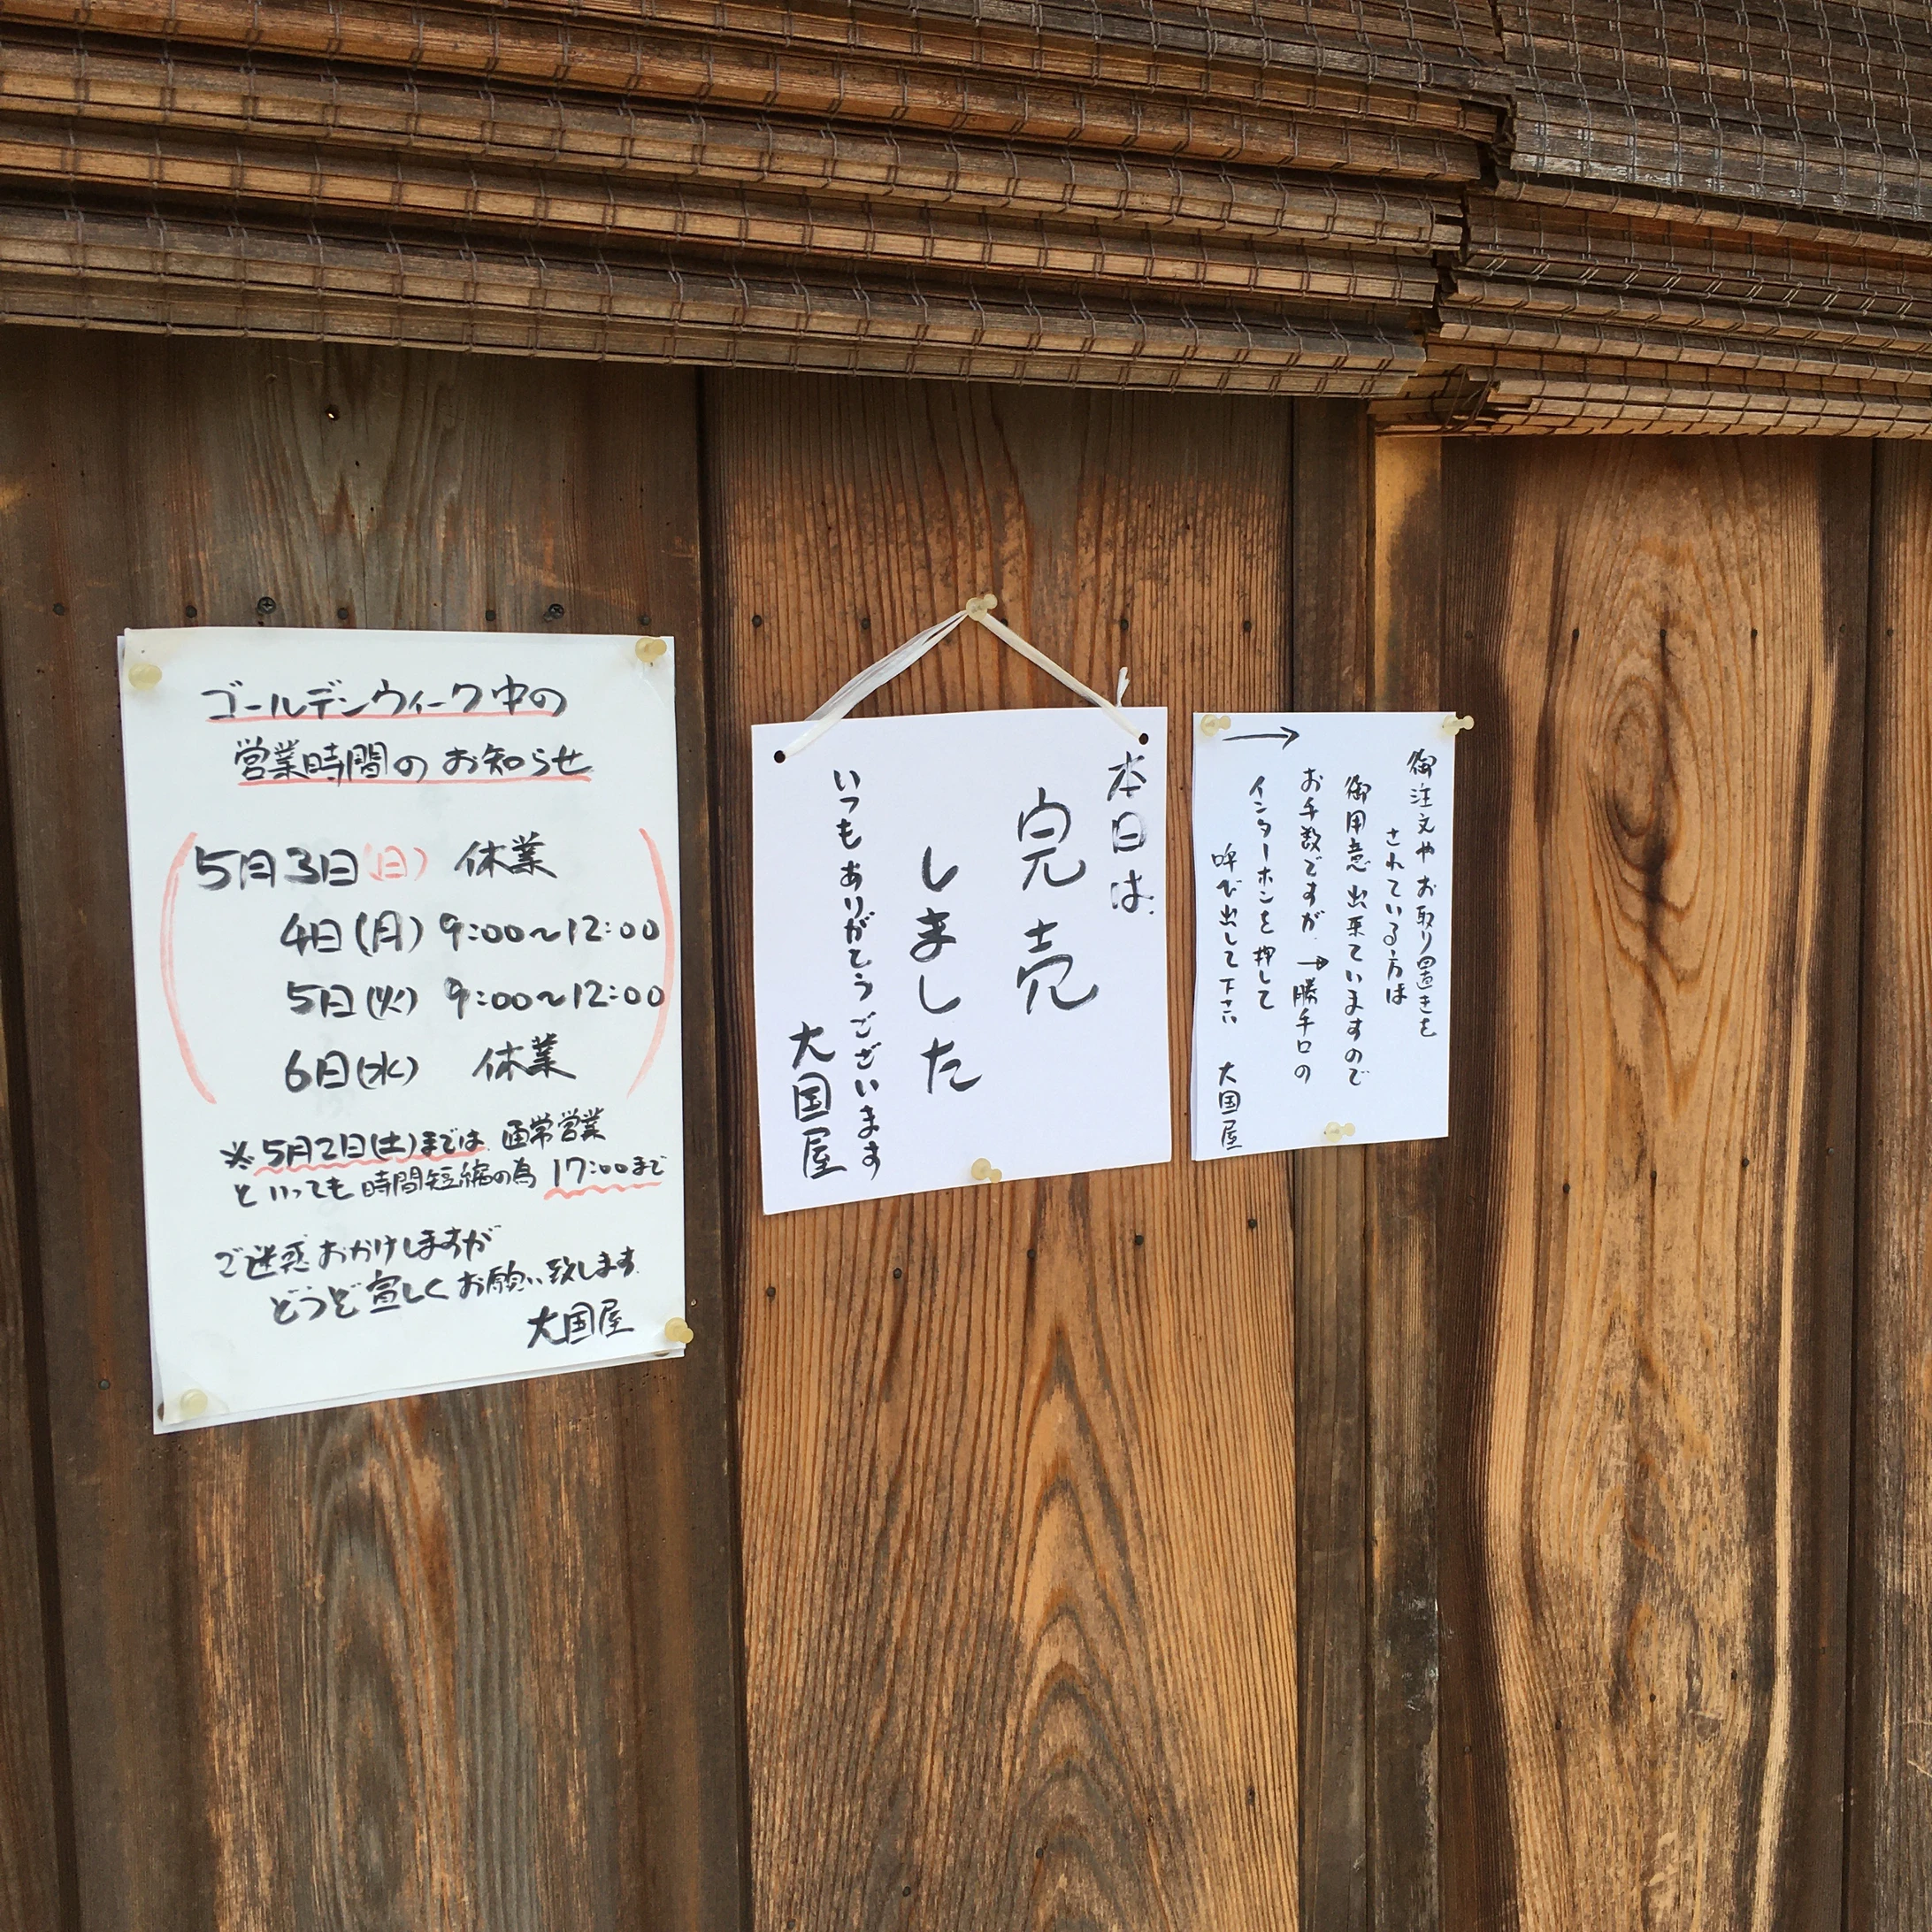 ゴールデンウィーク中の
営業時間のお知らせ
5月3日(日) 休業
4日(月) 9:00〜12:00
5日(火) 9:00〜12:00
6日(水) 休業
※5月2日(土)までは 通常営業
といっても 時間短縮の為 17:00まで
ご迷惑おかけしますが
どうぞ宜しくお願い致します
大国屋
本日は
完売
しました
いつもありがとうございます
大国屋
御注文やお取り置きを
されている方は
御用意出来ていますので
お手数ですが→勝手口の
インターホンを押して
呼び出して下さい 大国屋
→